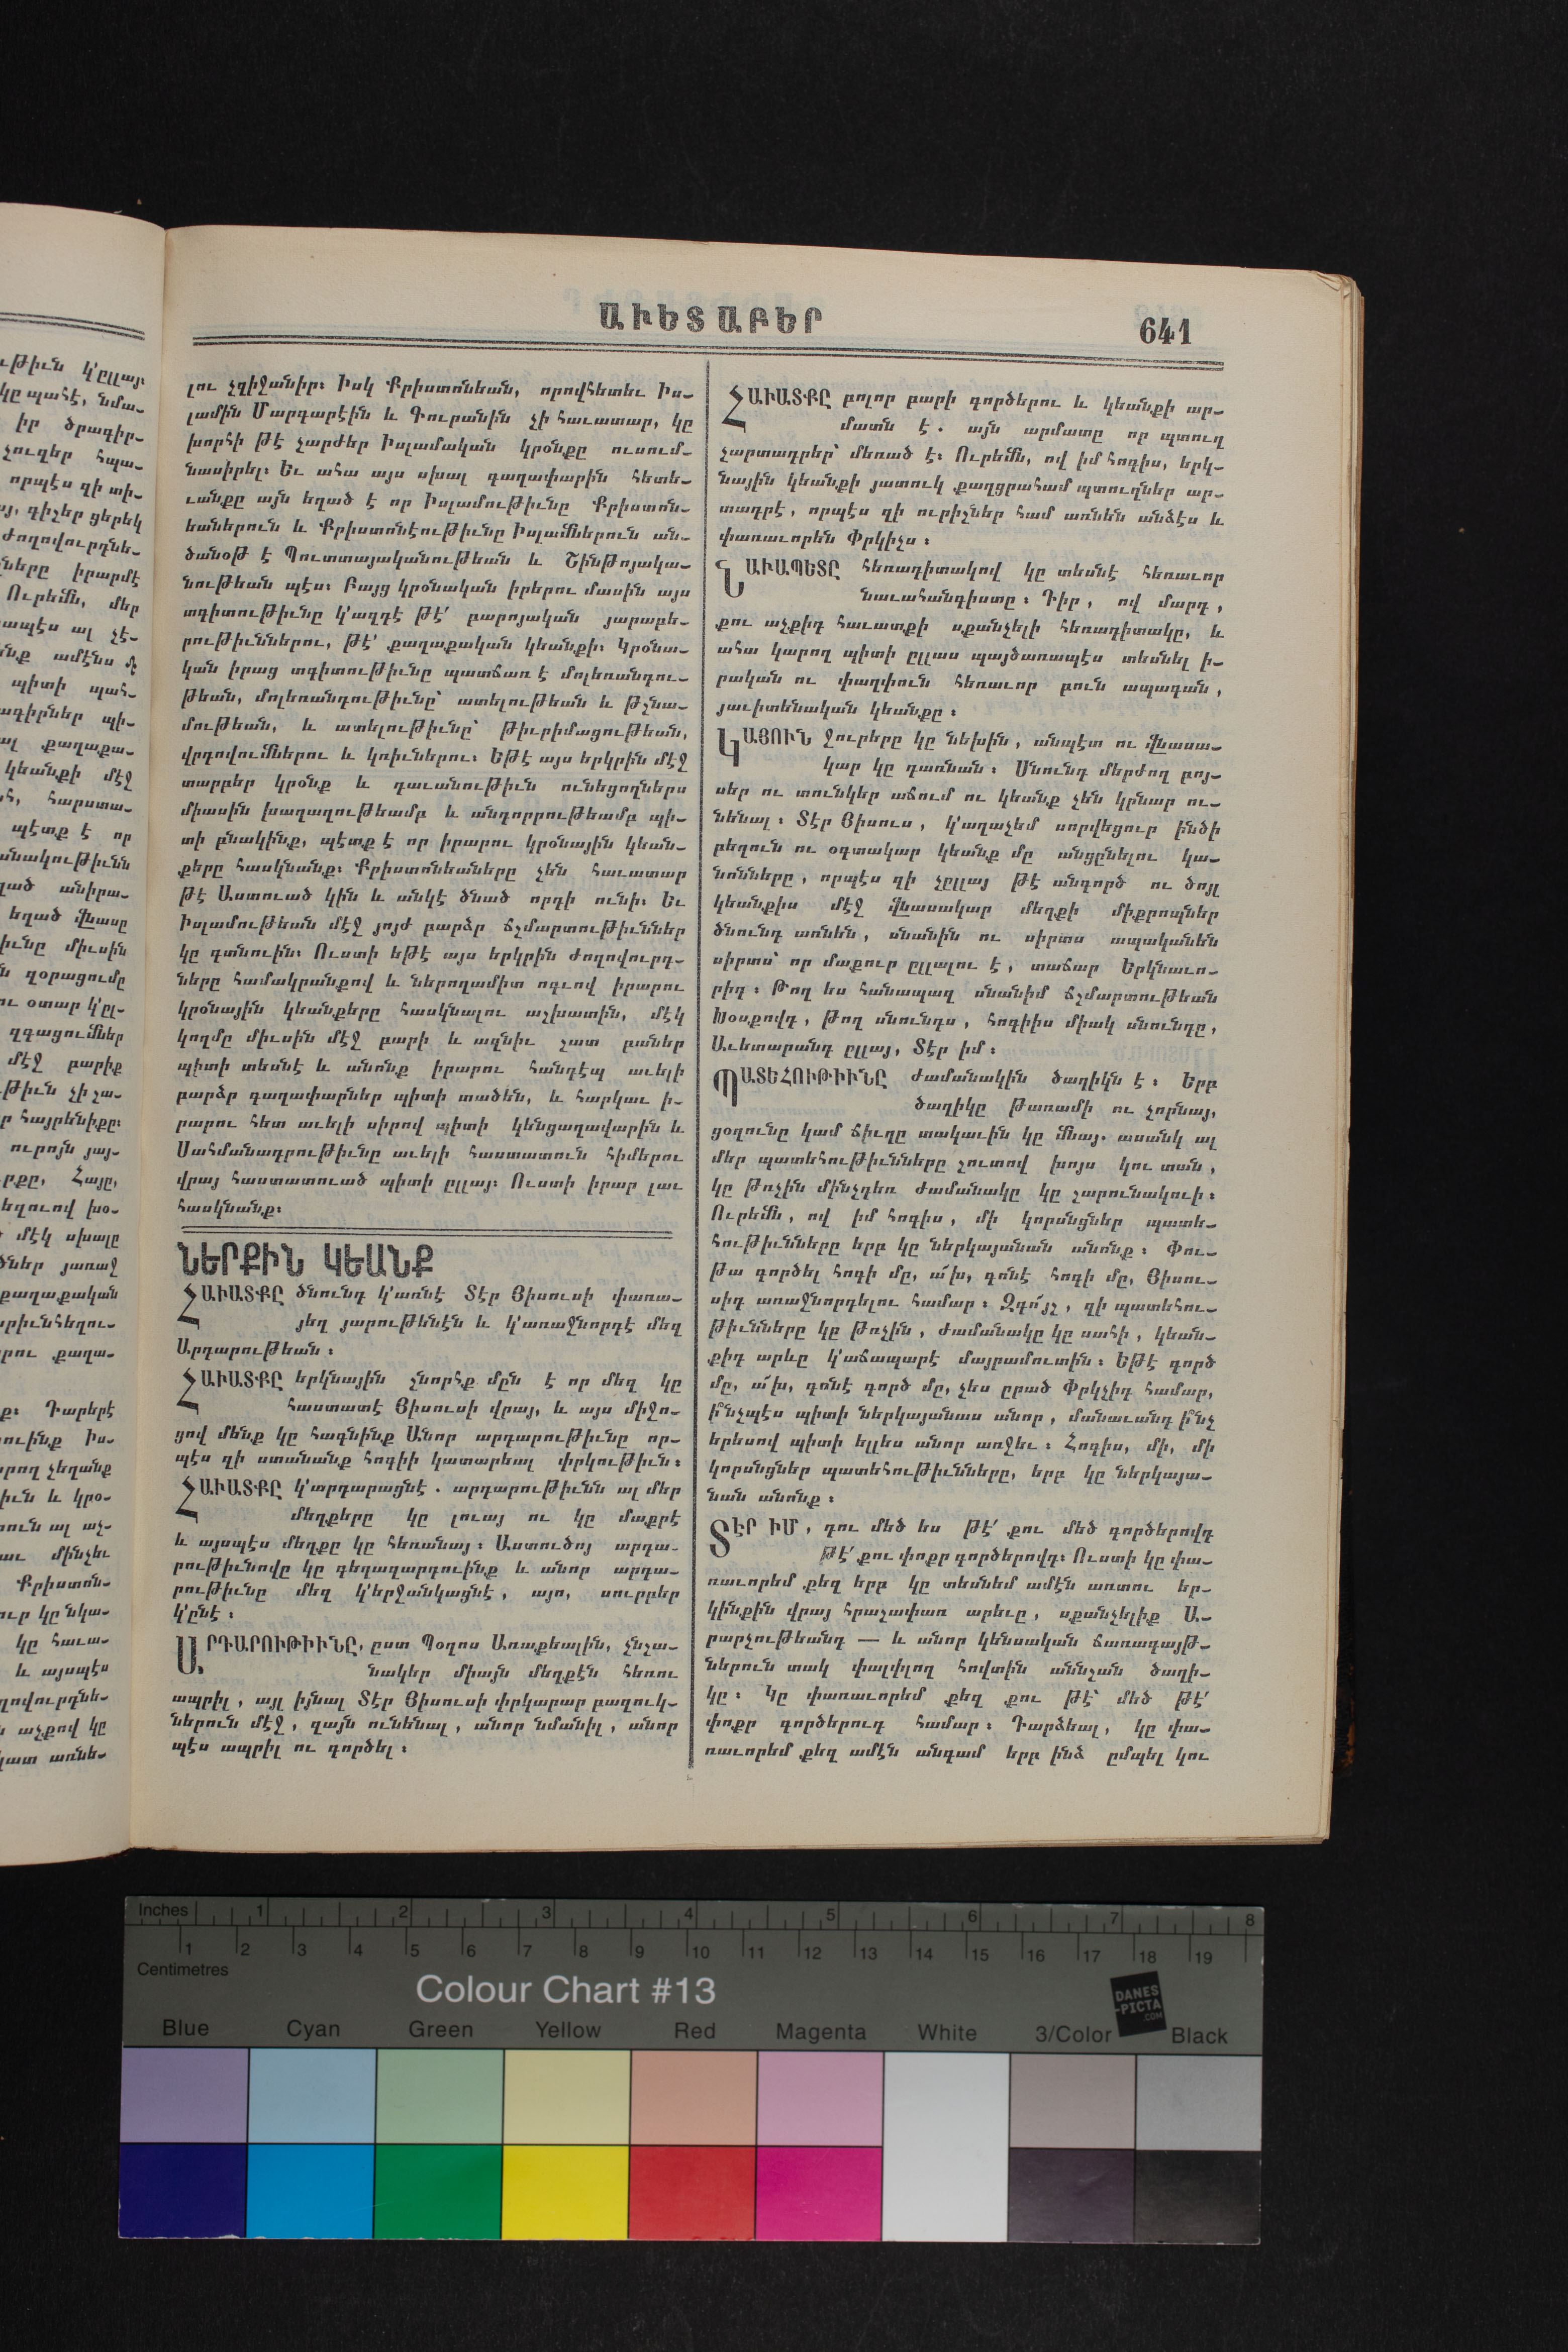 ԱՒԵՏԱԲԵՐ
641
լու չզիջանիր։ Իսկ Քրիստոնեան, որովհետեւ Իս-
լամին Մարգարէին և Գուրանին չի հաւատար, կը
խորհի թէ չարժեր Իսլամական կրօնքը ուսում-
նասիրել։ Եւ ահա այս սխալ գաղափարին հետե-
ւանքը այն եղած է որ Իսլամութիւնը Քրիստոն-
եաներուն և Քրիստոնէութիւնը Իսլամներուն ան-
ծանօթ է Պուտտայականութեան և Շինթոյակա-
նութեան պէս։ Բայց կրօնական իրերու մասին այս
տգիտութիւնը կ՚ազդէ թէ՛ բարոյական յարաբե-
րութիւններու, թէ՛ քաղաքական կեանքի։ Կրօնա-
կան իրաց տգիտութիւնը պատճառ է մոլեռանդու-
թեան, մոլեռանդութիւնը՝ ատելութեան և թշնա-
մութեան, և ատելութիւնը՝ թիւրիմացութեան,
վրդովումներու և կռիւներու։ Եթէ այս երկրին մէջ
տարբեր կրօնք և դաւանութիւն ունեցողներս
միասին խաղաղութեամբ և անդորրութեամբ պի-
տի բնակինք, պէտք է որ իրարու կրօնային կեան-
քերը հասկնանք։ Քրիստոնեաները չեն հաւատար
թէ Աստուած կին և անկէ ծնած որդի ունի։ Եւ
Իսլամութեան մէջ յոյժ բարձր ճշմարտութիւններ
կը գտնուին։ Ուստի եթէ այս երկրին ժողովուրդ-
ները համակրանքով և ներողամիտ ոգւով իրարու
կրօնային կեանքերը հասկնալու աշխատին, մէկ
կողմը միւսին մէջ բարի և ազնիւ շատ բաներ
պիտի տեսնէ և անոնք իրարու հանդէպ աւելի
բարձր գաղափարներ պիտի տածեն, և հարկաւ ի-
րարու հետ աւելի սիրով պիտի կենցաղավարին և
Սահմանադրութիւնը աւելի հաստատուն հիմերու
վրայ հաստատուած պիտի ըլլայ։ Ուստի իրար լաւ
հասկնանք։
ՆԵՐՔԻՆ ԿԵԱՆՔ
ՀԱՒԱՏՔԸ ծնունդ կ՚առնէ Տէր Յիսուսի փառա-
յեղ յարութենէն և կ՚առաջնորդէ մեզ
Արդարութեան։
ՀԱՒԱՏՔԸ երկնային շնորհք մըն է որ մեզ կը
հաստատէ Յիսուսի վրայ, և այս միջո-
ցով մենք կը հագնինք Անոր արդարութիւնը որ-
պէս զի ստանանք հոգիի կատարեալ փրկութիւն։
ՀԱՒԱՏՔԸ կ՚արդարացնէ. արդարութիւնն ալ մեր
մեղքերը կը լուայ ու կը մաքրէ
և այսպէս մեղքը կը հեռանայ։ Աստուծոյ արդա-
րութիւնովը կը գեղազարդուինք և անոր արդա-
րութիւնը մեզ կ՚երջանկացնէ, այո, սուրբեր
կ՚ընէ։
ԱՐԴԱՐՈՒԹԻՒՆԸ, ըստ Պօղոս Առաքեալին, չնշա-
նակեր միայն մեղքէն հեռու
ապրիլ, այլ իյնալ Տէր Յիսուսի փրկարար բազուկ-
ներուն մէջ, զայն ունենալ, անոր նմանիլ, անոր
պէս ապրիլ ու գործել։
ՀԱՒԱՏՔԸ բոլոր բարի գործերու և կեանքի ար-
մատն է. այն արմատը որ պտուղ
չարտադրեր՝ մեռած է։ Ուրեմն, ով իմ հոգիս, երկ-
նային կեանքի յատուկ քաղցրահամ պտուղներ ար-
տադրէ, որպէս զի ուրիշներ համ առնեն անձէս և
փառաւորեն Փրկիչս։
ՆԱՒԱՊԵՏԸ հեռադիտակով կը տեսնէ հեռաւոր
նաւահանգիստը։ Դիր, ով մարդ,
քու աչքիդ հաւատքի սքանչելի հեռադիտակը, և
ահա կարող պիտի ըլլաս պայծառապէս տեսնել ի-
րական ու փաղփուն հեռաւոր բուն ապագան,
յաւիտենական կեանքը։
ԿԱՅՈՒՆ ջուրերը կը նեխին, անպէտ ու վնասա-
կար կը դառնան։ Սնունդ մերժող բոյ-
սեր ու տունկեր աճում ու կեանք չեն կրնար ու-
նենալ։ Տէր Յիսուս, կ՚աղաչեմ սորվեցուր ինծի
բեղուն ու օգտակար կեանք մը անցընելու կա-
նոնները, որպէս զի չըլլայ թէ անգործ ու ծոյլ
կեանքիս մէջ վնասակար մեղքի միքրոպներ
ծնունդ առնեն, սնանին ու սիրտս ապականեն
սիրտս՝ որ մաքուր ըլլալու է, տաճար Երկնաւո-
րիդ։ Թող ես հանապազ սնանիմ ճշմարտութեան
Խօսքովդ, թող սնունդս, հոգիիս միակ սնունդը,
Աւետարանդ ըլլայ, Տէր իմ։
ՊԱՏԵՀՈՒԹԻՒՆԸ ժամանակին ծաղիկն է։ Երբ
ծաղիկը թառամի ու չորնայ,
ցօղունը կամ ճիւղը տակաւին կը մնայ. ասանկ ալ
մեր պատեհութիւնները շուտով խոյս կու տան,
կը թռչին մինչդեռ ժամանակը կը շարունակուի։
Ուրեմն, ով իմ հոգիս, մի կորսնցներ պատե-
հութիւնները երբ կը ներկայանան անոնք։ Փու-
թա գործել հոգի մը, ա՛խ, գոնէ հոգի մը, Յիսու-
սիդ առաջնորդելու համար։ Զգո՛յշ, զի պատեհու-
թիւնները կը թռչին, ժամանակը կը սահի, կեան-
քիդ արևը կ՚աճապարէ մայրամուտին։ Եթէ գործ
մը, ա՛խ, գոնէ գործ մը, չես ըրած Փրկչիդ համար,
ի՞նչպէս պիտի ներկայանաս անոր, մանաւանդ ի՞նչ
երեսով պիտի ելլես անոր առջեւ։ Հոգիս, մի, մի
կորսնցներ պատեհութիւնները, երբ կը ներկայա-
նան անոնք։
ՏԷՐ ԻՄ, դու մեծ ես թէ՛ քու մեծ գործերովդ
թէ՛ քու փոքր գործերովդ։ Ուստի կը փա-
ռաւորեմ քեզ երբ կը տեսնեմ ամէն առտու եր-
կինքին վրայ հրաշափառ արեւը, սքանչելիք Ա-
րարչութեանդ — և անոր կենսական ճառագայթ-
ներուն տակ փալփլող հովտին աննշան ծաղի-
կը։ Կը փառաւորեմ քեզ քու թէ՛ մեծ թէ՛
փոքր գործերուդ համար։ Դարձեալ, կը փա-
ռաւորեմ քեզ ամէն անգամ երբ ինձ ըմպել կու
Inches 1 2 3 4 5 6 7 8
1 2 3 4 5 6 7 8 9 10 11 12 13 14 15 16 17 18 19
Centimetres
Colour Chart #13
DANES
-PICTA
.COM
Blue Cyan Green Yellow Red Magenta White 3/Color Black